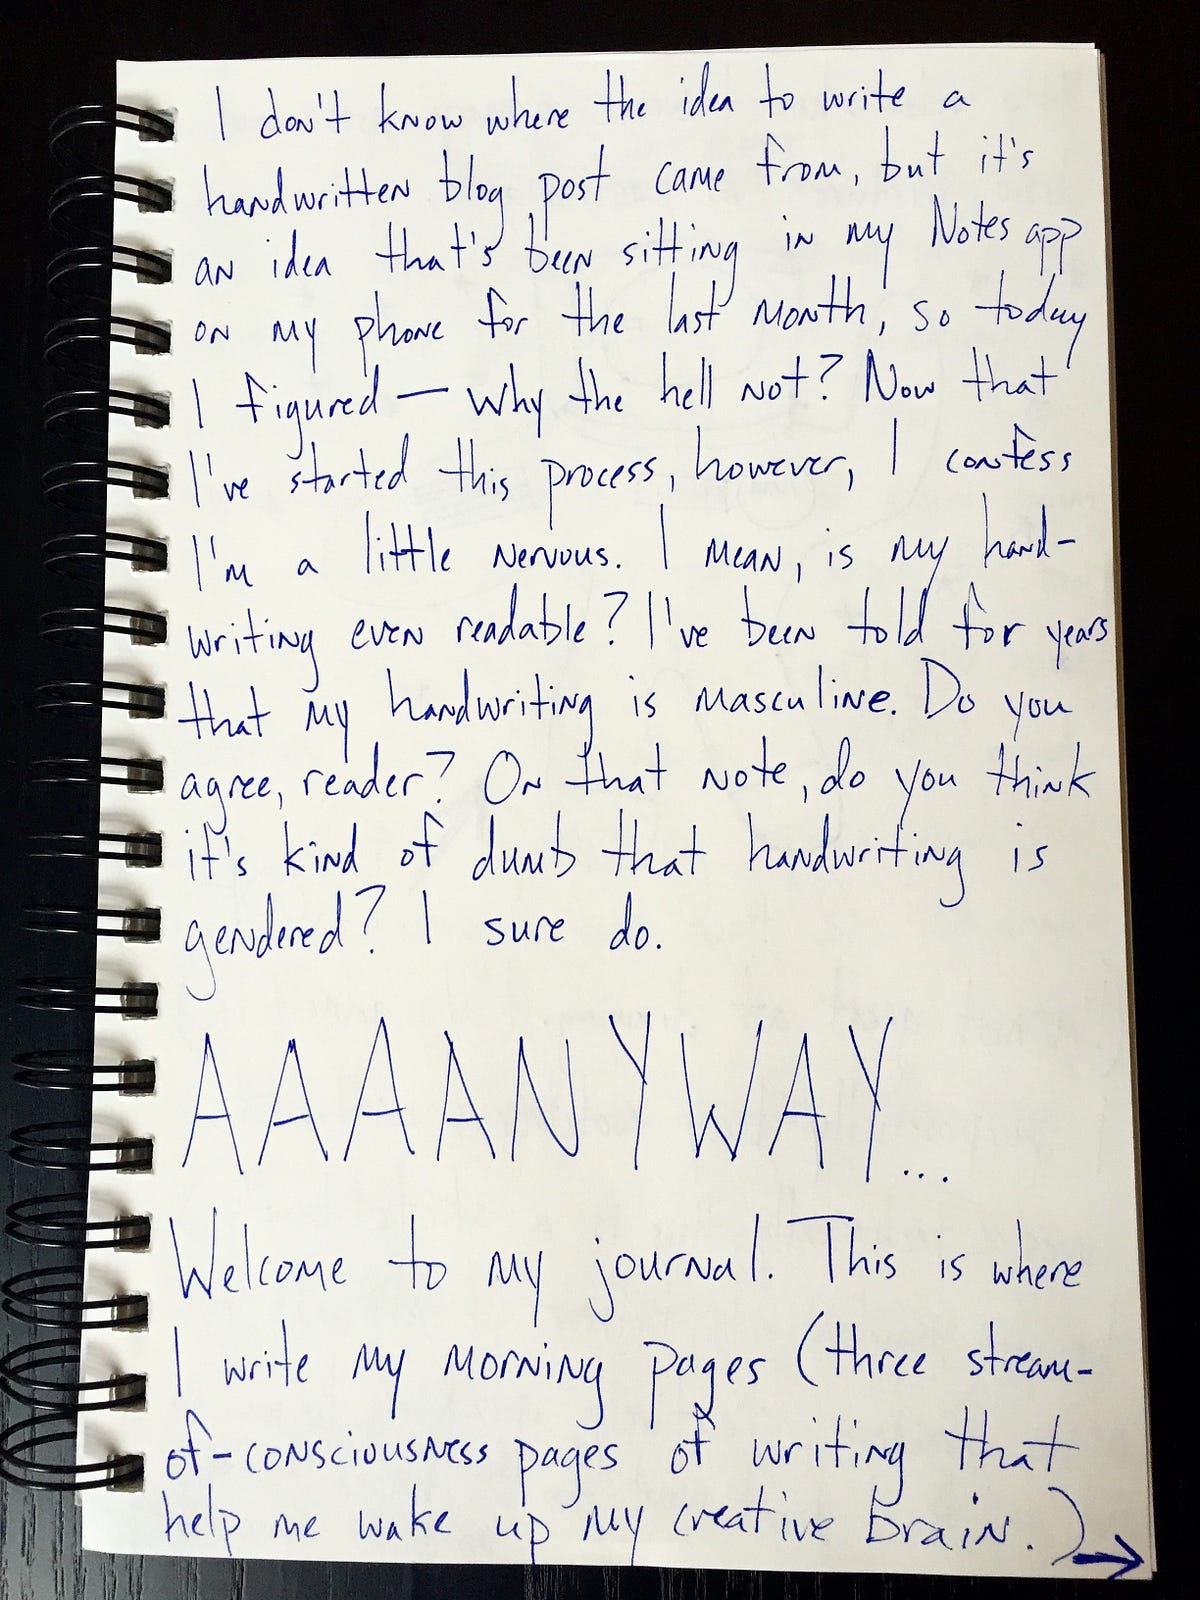 I don't know where the idea to write a
handwritten blog post came from, but it's
an idea that's been sitting in my Notes app
on my phone for the last month, so today
I figured — why the hell not? Now that
I've started this process, however, I confess
I'm a little nervous. I mean, is my hand-
writing even readable? I've been told for years
that my handwriting is masculine. Do you
agree, reader? On that note, do you think
it's kind of dumb that handwriting is
gendered? I sure do.
AAAANYWAY...
Welcome to my journal. This is where
I write my morning pages (three stream-
of-consciousness pages of writing that
help me wake up my creative brain.) →